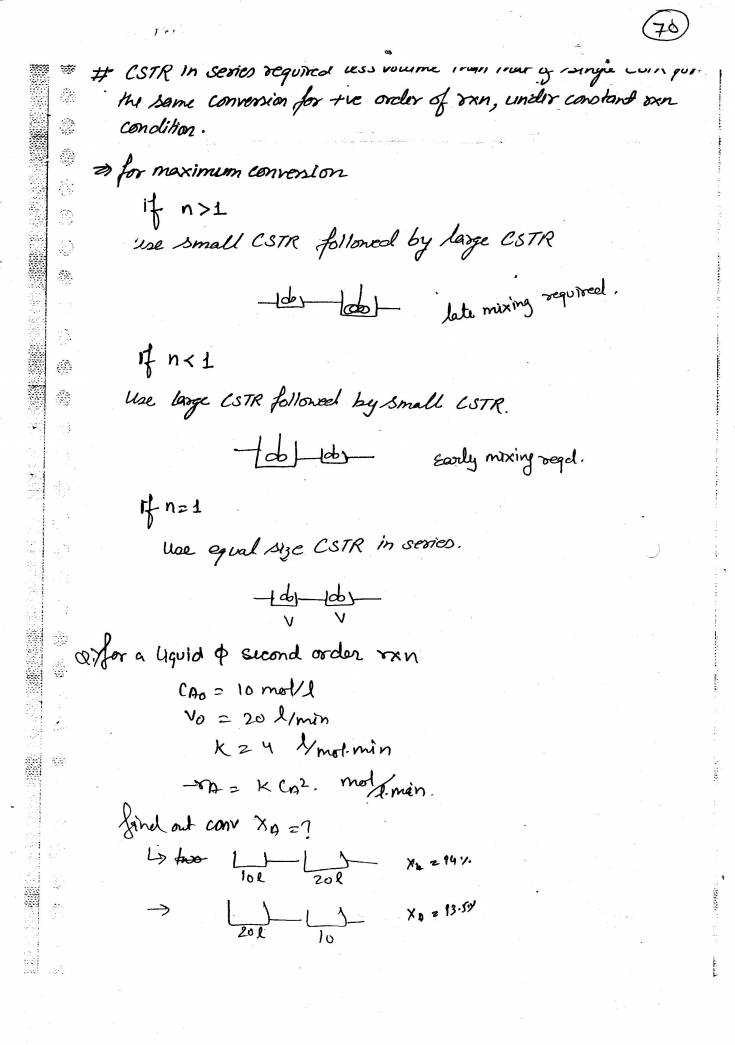 70
# CSTR in series required less volume than that of single
the same conversion for +ve order of rxn, under constant rxn
condition.
⇒ for maximum conversion
if n>1
use small CSTR followed by large CSTR
late mixing required.
If n<1
Use large CSTR followed by small CSTR.
Early mixing reqd.
If n=1
Use equal size CSTR in series.
V V
Q. for a liquid ϕ second order rxn
CA0 = 10 mol/l
V0 = 20 l/min
K = 4 l/mol.min
-rA = K CA². mol/l.min.
find out conv XA = ?
↳ 10l 20l XA = 94%
→ 20l 10 XA = 93.5%